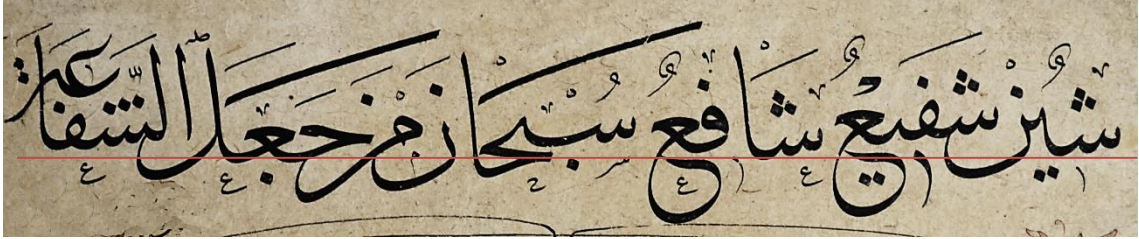 شين شفيعٌ شافعٌ سُبْحان من جعل الشفاعة